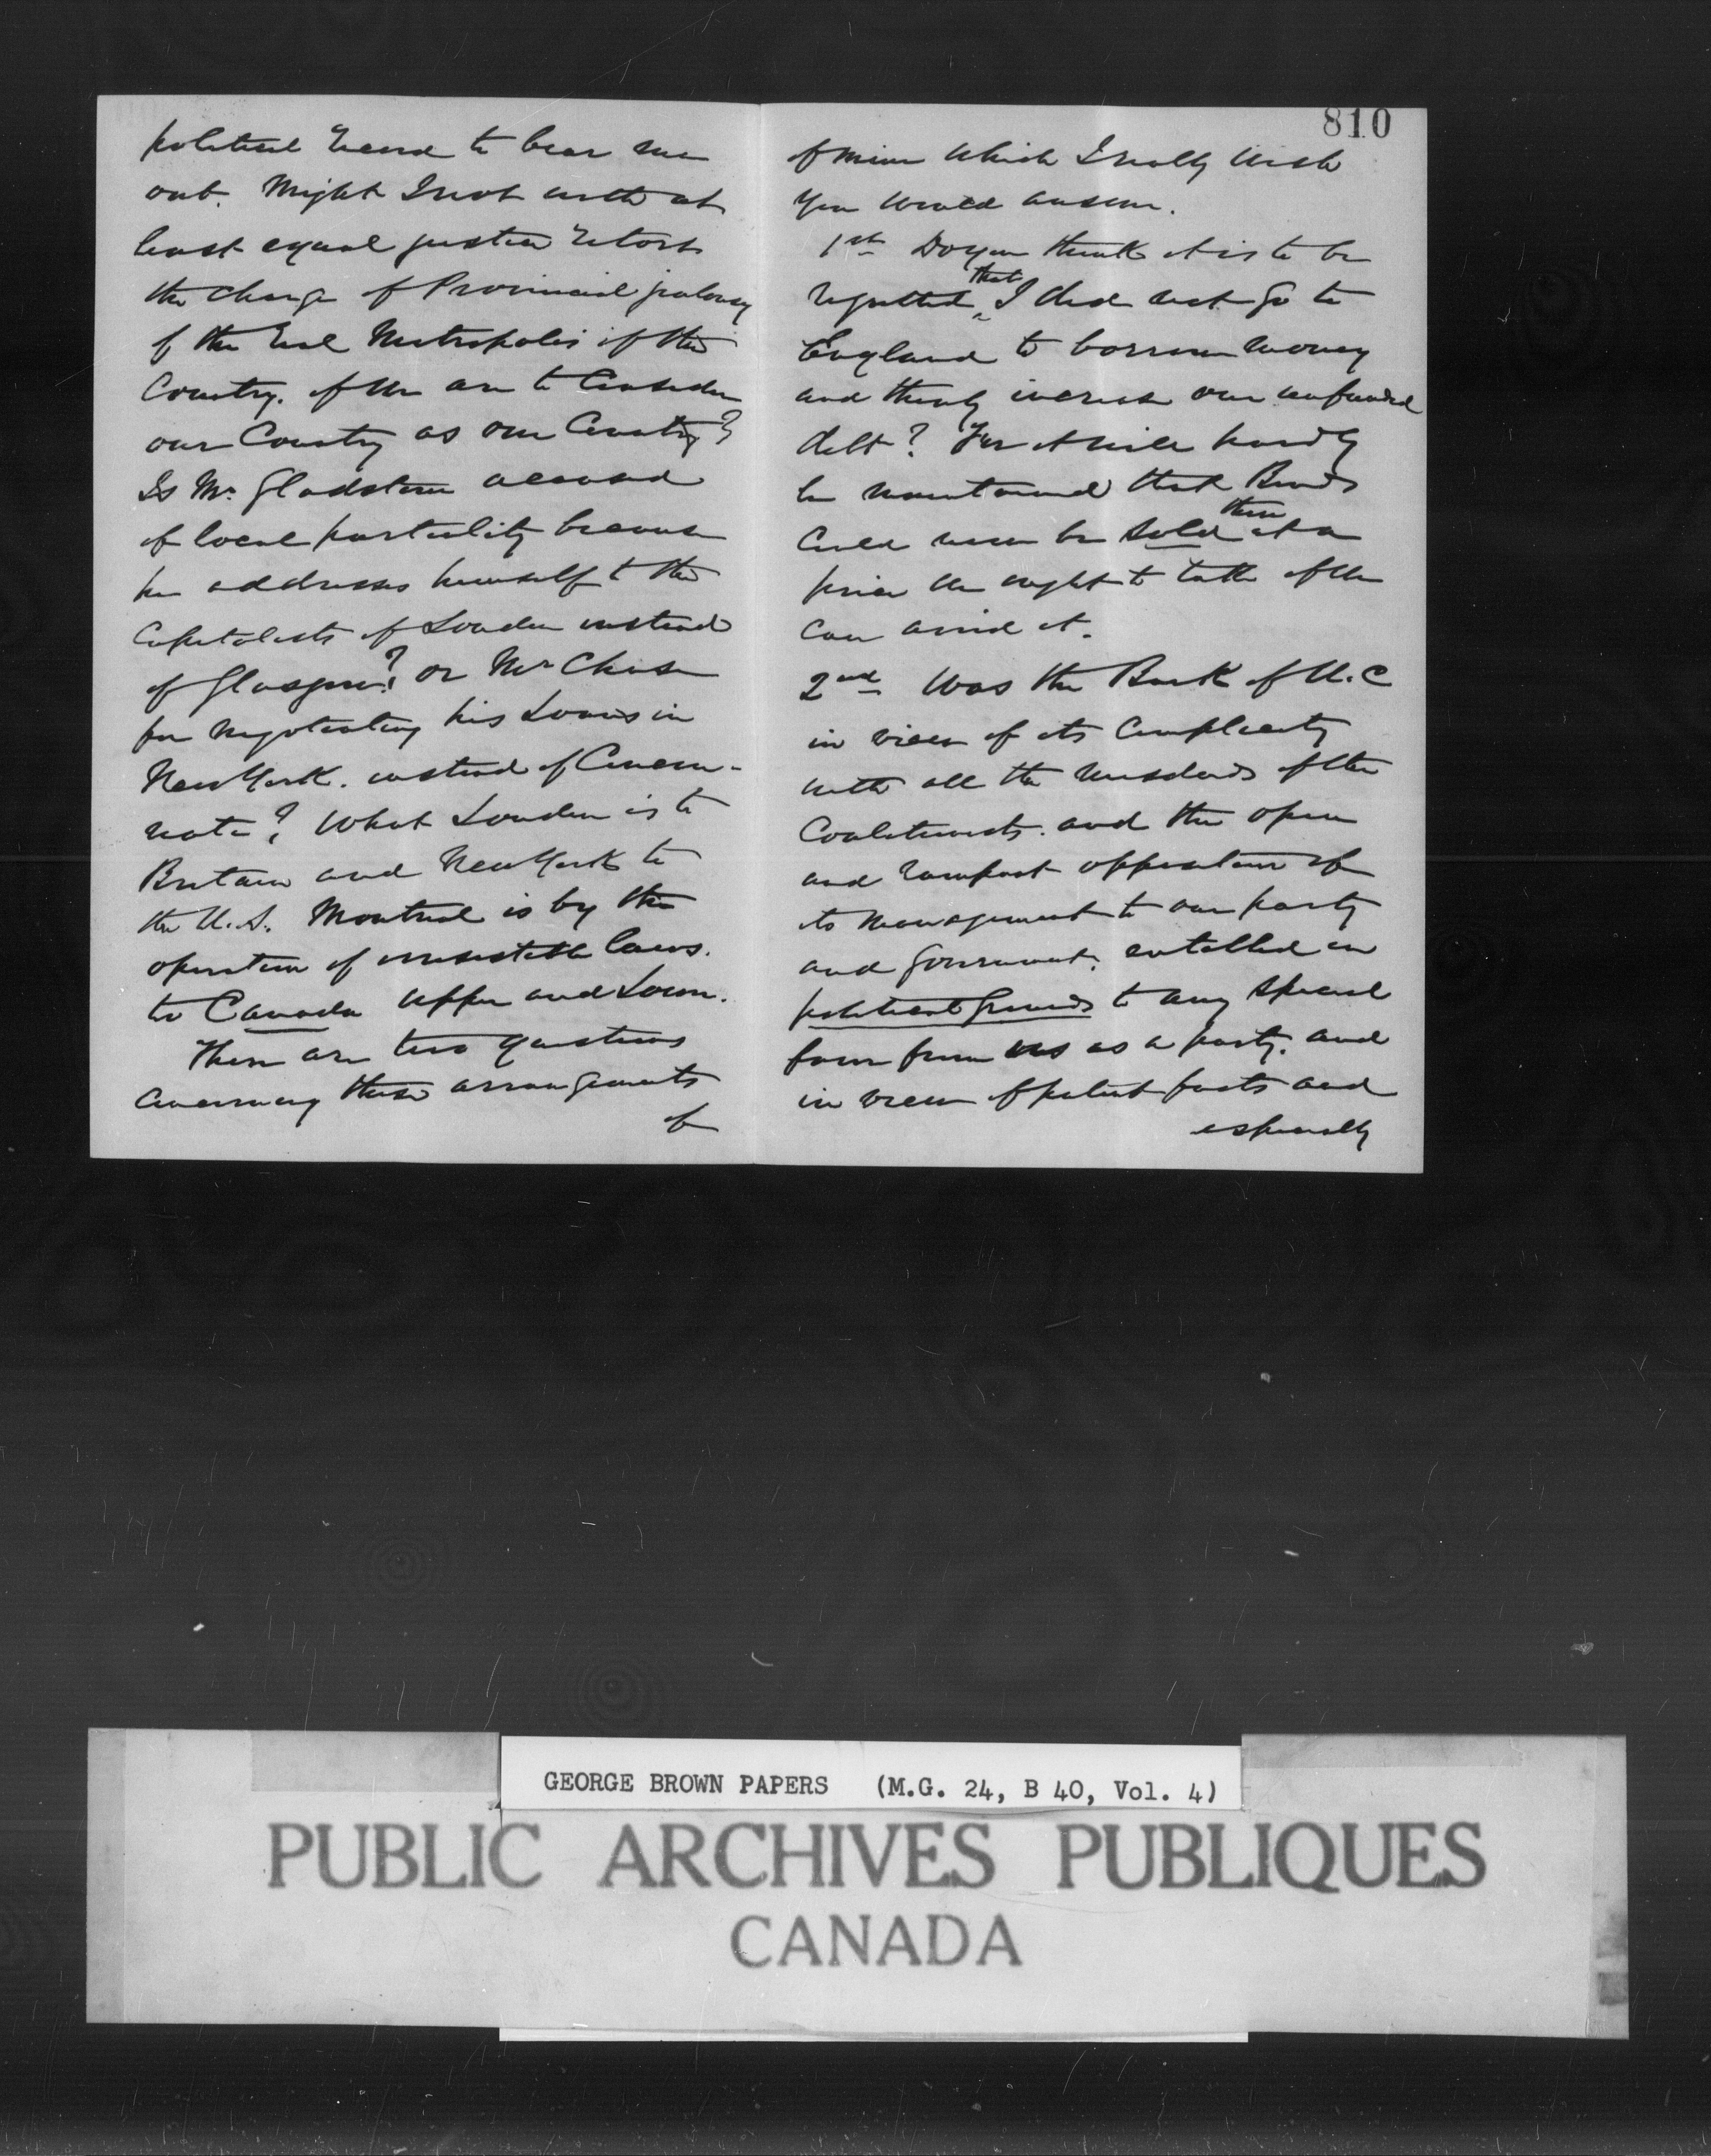 political record to bear me
out. Might I not with at
least equal justice retort
the charge of Provincial jealousy
of the real Metropolis of the
Country. if we are to consider
our Country as one Country?
Is Mr. Gladstone accused
of local partiality because
he addresses himself to the
Capitalists of London instead
of Glasgow? or Mr Chase
for negotiating his Loans in
New York. instead of Cincin-
nati? What London is to
Britain and New York to
the U.S. Montreal is by the
operation of irresistible laws.
to Canada Upper and Lower.
There are two questions
concerning these arrangements
of
810
of mine which I really wish
you would answer.
1st Do you think it is to be
regretted that I did not go to
England to borrow money
and thereby increase our unfunded
debt? For it will hardly
be maintained that Bonds
could now be sold there at a
price we ought to take if we
can avoid it.
2nd Was the Bank of U.C
in view of its complicity
with all the misdeeds of the
Coalitionists. and the open
and rampant opposition of
its management to our party
and government. entitled on
political grounds to any special
favor from us as a party. and
in view of patent facts and
especially
GEORGE BROWN PAPERS (M.G. 24, B 40, Vol. 4)
PUBLIC ARCHIVES PUBLIQUES
CANADA